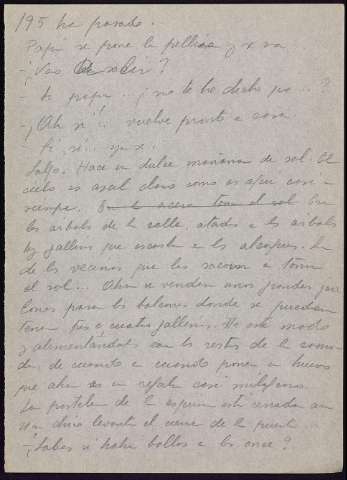 195 ha pasado.
Papi se pone la pelliza y se va
- ¿Vas a salir?
- Si papa... ¿no te lo he dicho ya...?
- ¡Ah si!... vuelve pronto a casa
- Si, si... ya...
Salgo. Hace una dulce mañana de sol. El
cielo es azul claro como es aqui casi
siempre. En la acera toma el sol En
los arboles de la calle, atados a los arboles
hay gallinas que escarban en los alcorques. Son
de los vecinos que las sacan a tomar
el sol... Ahora se venden unos grandes
para los balcones donde se pueden
tener tres o cuatro gallinas. De este modo
y alimentandolas con los restos de la comida
de cuando en cuando ponen un huevo
que ahora es un regalo casi milagroso.
La pasteleria de la esquina está cerrada aun
Un chico levanta el cierre de la puerta
- ¿Sabes si habrá bollos a las once?